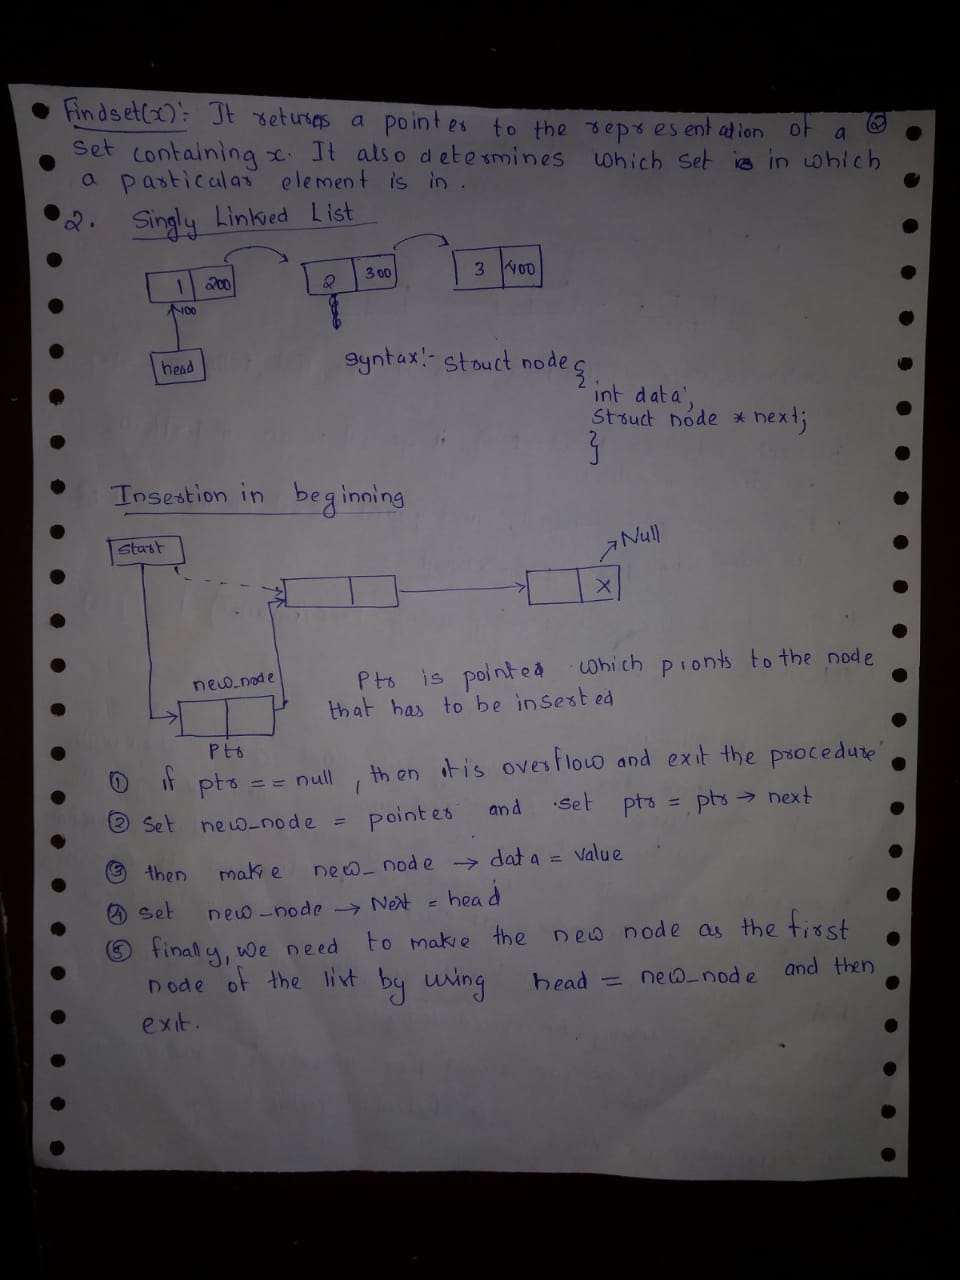 Findset(x): It returns a pointer to the representation of a ②
Set containing x. It also determines which set is in which
a particular element is in.
2. Singly Linked List
1 200
2 300
3 400
100
head
Syntax:- Struct node {
int data;
Struct node * next;
}
Insertion in beginning
Start
Null
X
new_node
Ptr
Ptr is pointed which pionts to the node
that has to be inserted
① if ptr == null, then it is overflow and exit the procedure
② Set new_node = pointer and set ptr = ptr → next
③ then make new_node → data = value
④ set new_node → Next = head
⑤ finally, we need to make the new node as the first
node of the list by using head = new_node and then
exit.